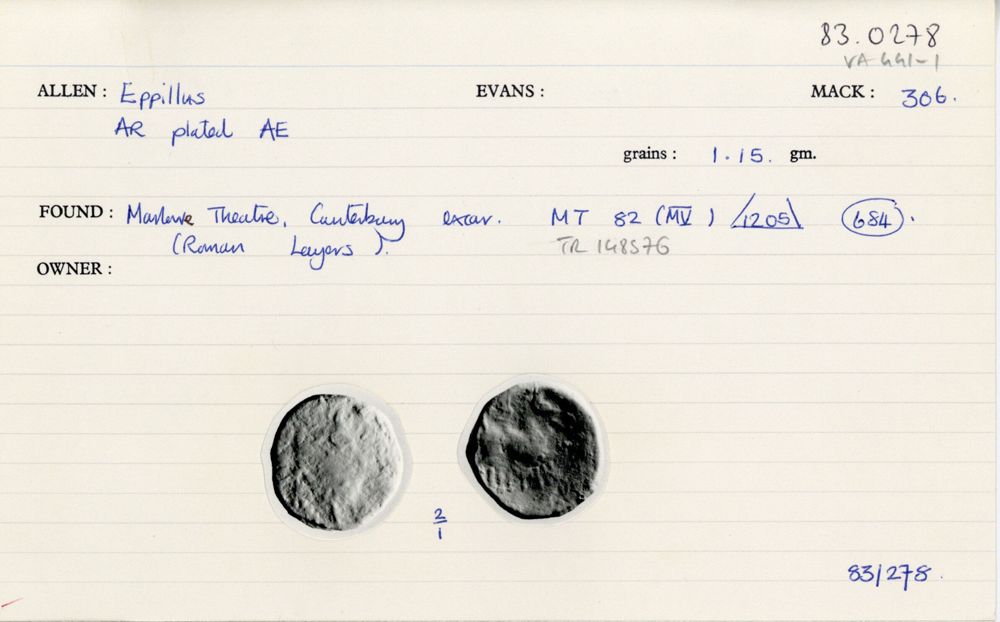 83.0278
VA 441-1
ALLEN : Eppillus EVANS : MACK : 306.
AR plated AE
grains : 1.15. gm.
FOUND : Marlowe Theatre, Canterbury excav. MT 82 (MV) 1205 684.
(Roman Layers).
TR 148576
OWNER :
2/1
83/278.